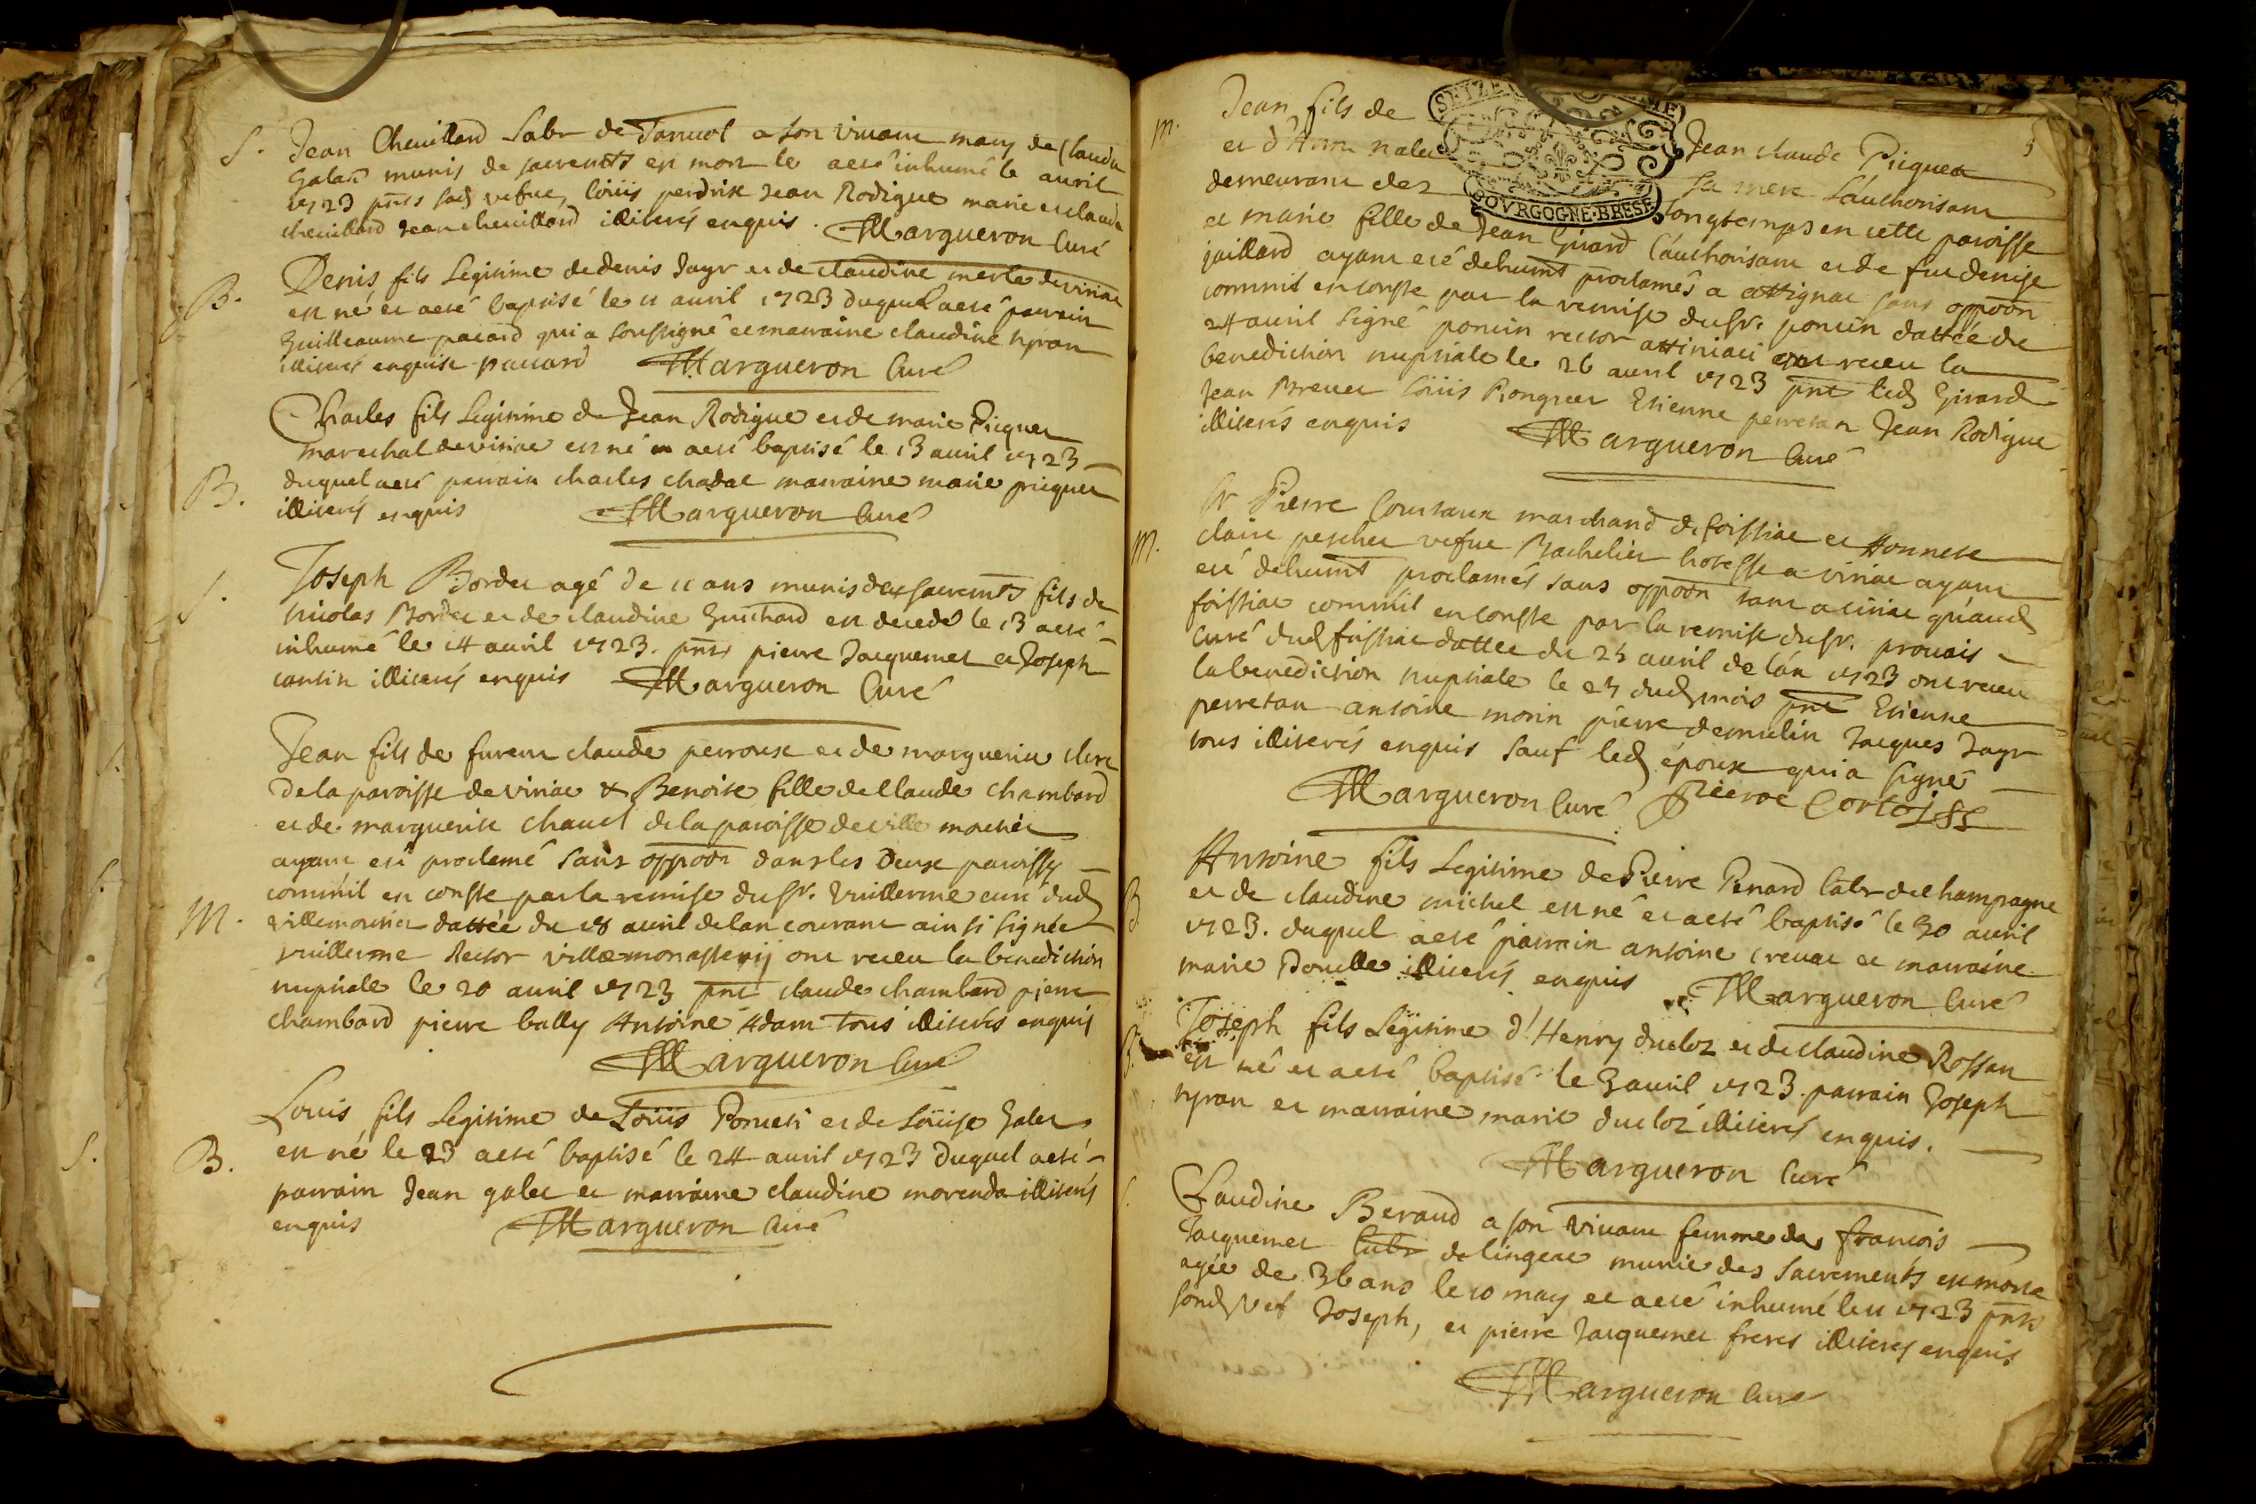 S. Jean Chevillard labr de Tanvol a son vivant mary de Claudine
Galan munis de sacremts est mort le a eté inhumé le avril
1723 pnts sad vefve, Loüis perdrix Jean Rodigue marie et claude
chevillard Jean chevillard illiterés enquis. Margueron Curé
B. Denis fils Legitime de denis Jayr et de claudine merle de viriac
est né et a eté baptisé le 11 avril 1723 duquel a eté parrain
Guilleaume pacard qui a soussigné et marraine claudine
illiterée enquise paccard Margueron Curé
Charles fils Legitime de Jean Rodigue et de marie Picquet
marechal de viriac est né et a eté baptisé le 13 avril 1723
B. duquel a eté parrain charles chadal marraine marie picquet
illiterés enquis Margueron Curé
S. Joseph Bordet agé de 11 ans munis des sacremts fils de
nicolas Bordet et de claudine Guichard est decedé le 13 a eté
inhumé le 14 avril 1723. pnts pierre Jacquemet et Joseph
cantin illiterés enquis Margueron Curé
Jean fils de fu claude perroux et de marguerite clerc
de la paroisse de viriac & Benoite fille de Claude chambard
et de marguerite chanel de la paroisse de ville motier
ayant eté proclamé sans oppoon dans les deux paroisses
comm'il en conste par la remise du Sr. Vuillerme curé dud
M. villemotier dattée du 18 avril de lan courant ainsi signée
vuillerme Rector villæmonasterij ont receu la benediction
nuptiale le 20 avril 1723 pnt claude chambard pierre
chambard pierre bally Antoine Adam tous illiterés enquis
Margueron Curé
Louis fils Legitime de Loüis Poncet et de Loüise Galet
B. est né le 23 a eté baptisé le 24 avril 1723 duquel a eté
parrain Jean galet et marraine claudine morenda illiterés
enquis Margueron Curé
SEIZE
BOVRGOGNE·BRESE
5
M. Jean fils de Jean claude Picquet
et d'Anne nalet sa mere L'authorisant
demeurant dez longtemps en cette paroisse
et marie fille de Jean Girard L'authorisant et de fue denise
jaillard ayant eté dehumt proclamés a attignat sans oppoon
comm'il en conste par la remise du Sr. poncin dattée du
24 avril signé poncin rector attiniaci ont receu la
benediction nuptiale le 26 avril 1723 pnt led Girard
Jean Brevet Loüis Rongeer Etienne perretan Jean Rodigue
illiterés enquis Margueron Curé
Sr Pierre Courtaux marchand de foissiac et Honnete
M. claire peschet vefve Bachelier hotesse a viriac ayant
eté dehumt proclamés sans oppoon tant a viriac qu'aud
foissiac comm'il en conste par la remise du Sr. provais
curé dud foissiac dattée du 25 avril de l'an 1723 ont receu
la benediction nuptiale le 27 dud mois pnt Etienne
perretan antoine morin pierre demulin Jacques Jayr
tous illiterés enquis sauf led époux qui a signé
Margueron Curé Pierre Cortoiss
Antoine fils Legitime de Pierre Penard labr de champagne
B et de claudine michel est né et a eté baptisé le 30 avril
1723. duquel a eté parrain antoine crevat et marraine
marie Doucllet illiterés enquis Margueron Curé
Joseph fils Legitime d'Henry ducloz et de claudine Rossan
B. est né et a eté baptisé le 3 avril 1723. parrain Joseph
et marraine marie ducloz illiterés enquis.
Margueron Curé
Claudine Beraud a son vivant femme de francois
Jacquemet labr de lingeat munie des sacrements est morte
agée de 36 ans le 10 may et a eté inhumé le 11 1723 pnts
sond vef Joseph, et pierre Jacquemet freres illiterés enquis
Margueron Curé